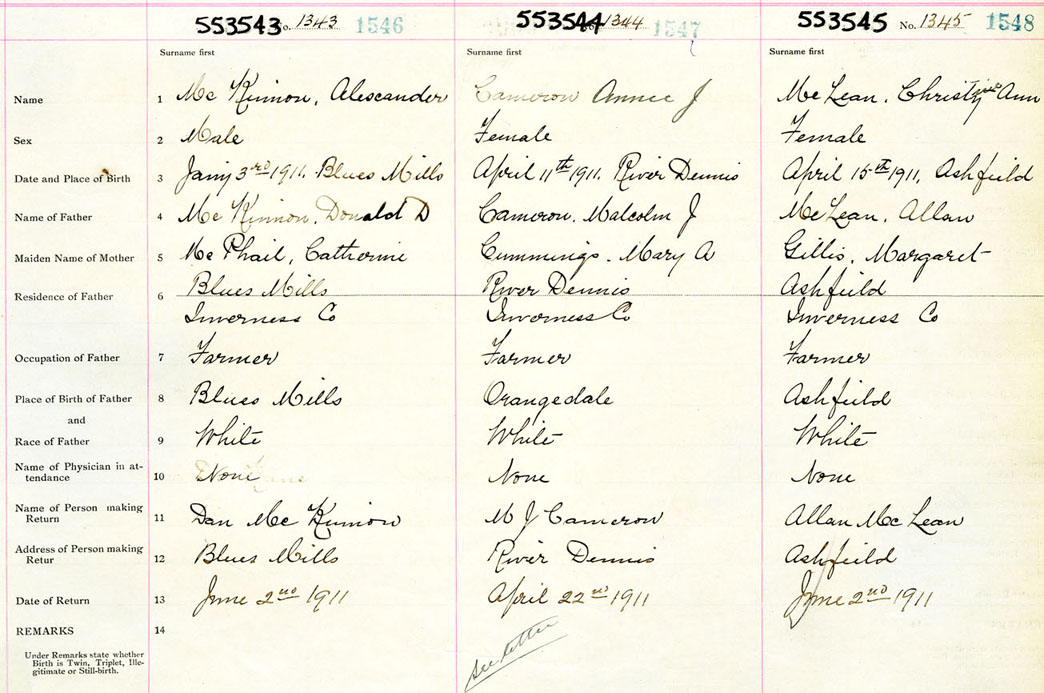 553543 No. 1343 1546 553544 No. 1344 1547 553545 No. 1345 1548
Surname first Surname first Surname first
Name 1 Mc Kinnon, Alexander Cameron Annie J Mc Lean, Christy Ann
Sex 2 Male Female Female
Date and Place of Birth 3 Jany 3rd 1911. Blues Mills April 11th 1911. River Dennis April 15th 1911, Ashfield
Name of Father 4 Mc Kinnon, Donald D Cameron, Malcolm J Mc Lean, Allan
Maiden Name of Mother 5 Mc Phail, Catherine Cummings. Mary A Gillis, Margaret
Residence of Father 6 Blues Mills River Dennis Ashfield
Inverness Co Inverness Co Inverness Co
Occupation of Father 7 Farmer Farmer Farmer
Place of Birth of Father 8 Blues Mills Orangedale Ashfield
and
Race of Father 9 White White White
Name of Physician in at-
tendance 10 None None None
Name of Person making
Return 11 Dan Mc Kinnon M J Cameron Allan Mc Lean
Address of Person making
Retur 12 Blues Mills River Dennis Ashfield
Date of Return 13 June 2nd 1911 April 22nd 1911 June 2nd 1911
REMARKS 14
Under Remarks state whether
Birth is Twin, Triplet, Ille-
gitimate or Still-birth.
see letter